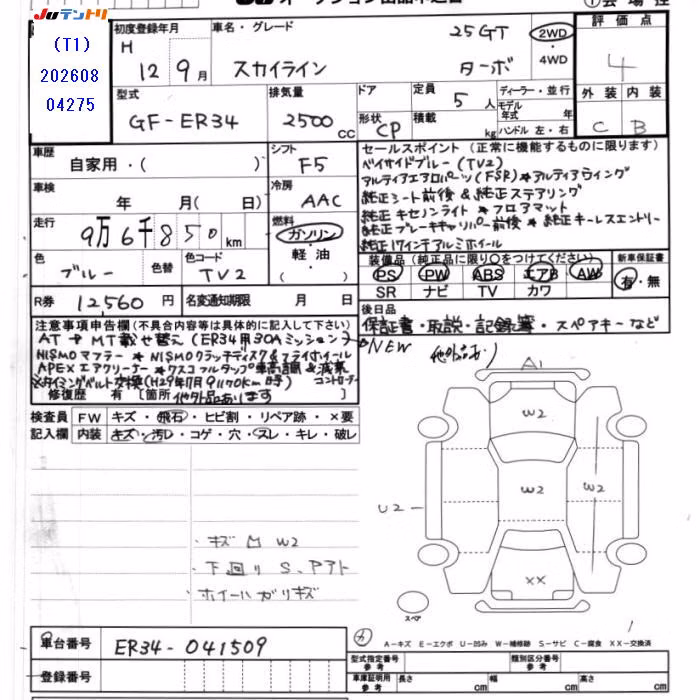 JUテントリ
(T1)
202608
04275
初度登録年月
H
12 9月
車名・グレード
25GT
スカイライン ターボ
2WD
・
4WD
評価点
4
型式
GF-ER34
排気量
2500 CC
ドア
形状 CP
定員
5 人
積載 kg
ディーラー・並行
モデル年式 年
ハンドル 左・右
外装 内装
C B
車歴
自家用・( )
シフト
F5
車検
年 月( 日)
冷房
AAC
走行
9万6千850 km
燃料
ガソリン・
軽油・
( )
色
ブルー
色替
色コード
TV2
R券 12,560 円
名変通知期限 月 日
セールスポイント (正常に機能するものに限ります)
ベイサイドブルー(TV2)
アルティアエアロパーツ(FSR)*アルティアウイング
純正シート前後&純正ステアリング
純正キセノンライト * フロアマット
純正ブレーキキャリパー前後 * 純正キーレスエントリー
純正17インチアルミホイール
装備品 (純正品に限り○をつけてください)
PS PW ABS エアB AW
SR ナビ TV カワ
新車保証書
有・無
後日品
保証書・取説・記録簿・スペアキーなど
注意事項申告欄 (不具合内容等は具体的に記入して下さい)
AT→MT載せ替え(ER34用30Aミッション)
NISMOマフラー *NISMOクラッチディスク&フライホイール
APEXエアクリーナー *クスコフルタップ車高調&減衰
※タイミングベルト交換(H29年7月91170km時) コントローラー
修復歴 有 [箇所 他外品あります ]
NEW
検査員
記入欄
FW キズ・飛石・ヒビ割・リペア跡・×要
内装 キズ・汚レ・コゲ・穴・スレ・キレ・破レ
A1
W2
W2
W2
U2
XX
スペア
・キズ凹W2
・下廻りS、アアト
・ホイールガリキズ
車台番号 ER34-041509
登録番号
A-キズ E-エクボ U-凹み W-補修跡 S-サビ C-腐食 XX-交換済
型式指定番号 参考
類別区分番号 参考
車庫証明用 参考
長さ cm
幅 cm
高さ cm